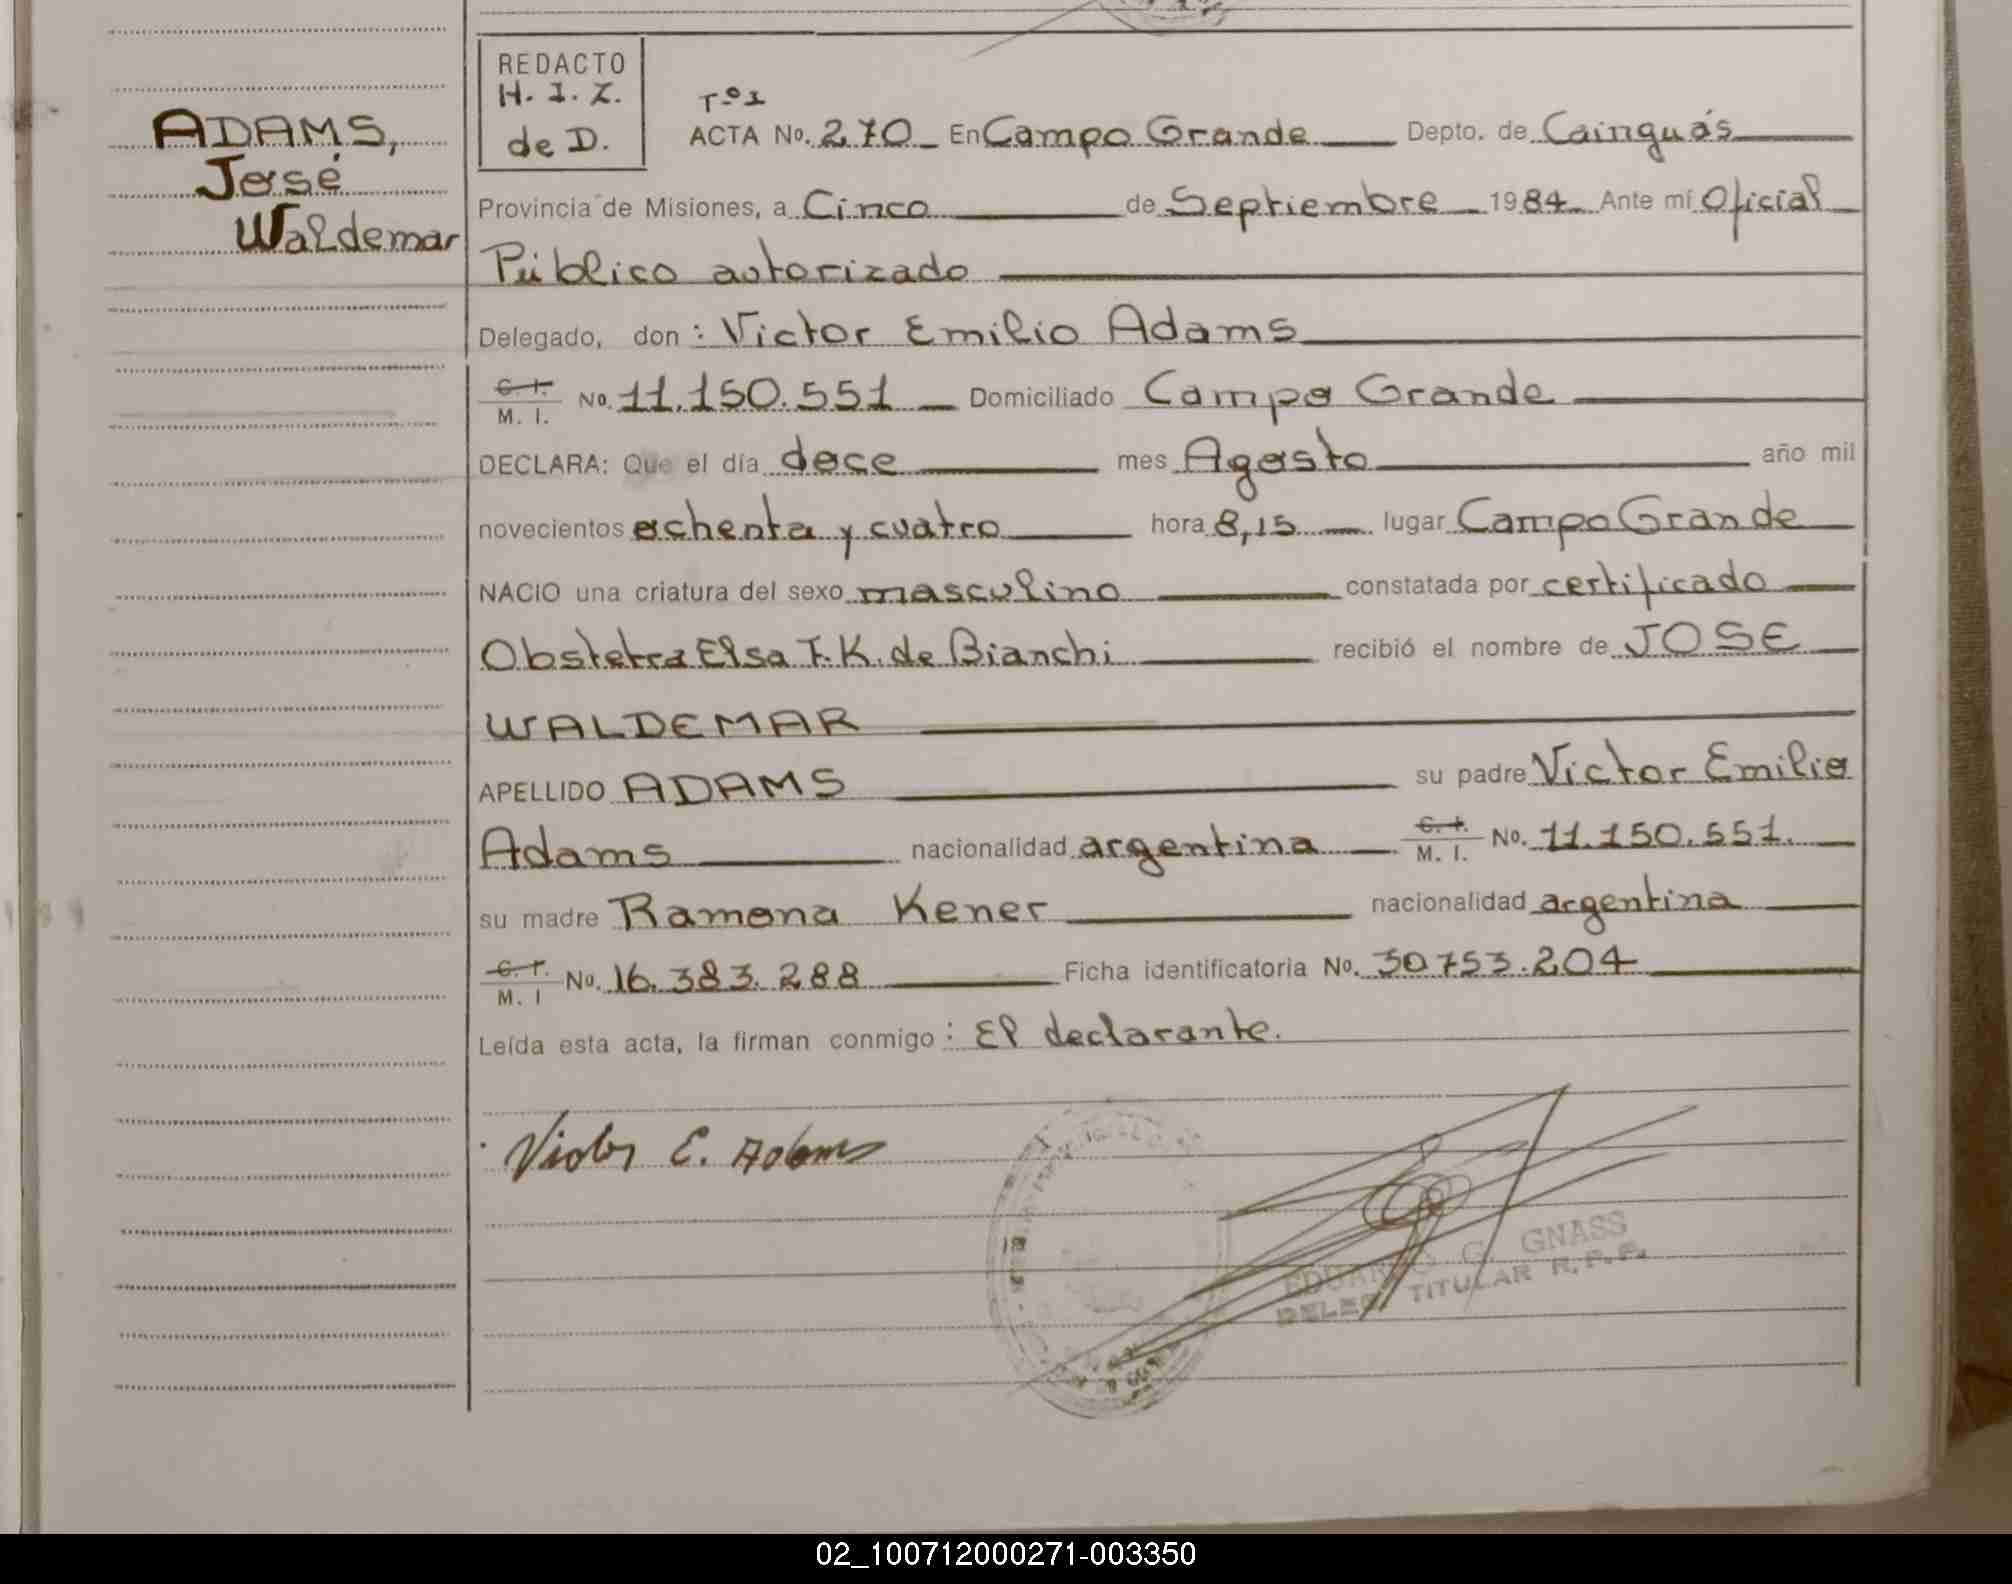 ADAMS,
José
Waldemar
REDACTO
H. I. Z.
de D.
Tº I
ACTA No. 270 En Campo Grande Depto. de Cainguás
Provincia de Misiones, a Cinco de Septiembre 1984 Ante mí Oficial
Público autorizado
Delegado, don : Victor Emilio Adams
C. I.
M. I. No. 11.150.551 Domiciliado Campo Grande
DECLARA: Que el día doce mes Agosto año mil
novecientos ochenta y cuatro hora 8,15 lugar Campo Grande
NACIO una criatura del sexo masculino constatada por certificado
Obstetra Elsa F. K. de Bianchi recibió el nombre de JOSE
WALDEMAR
APELLIDO ADAMS su padre Victor Emilio
Adams nacionalidad argentina C. I. M. I. No. 11.150.551.
su madre Ramona Kener nacionalidad argentina
C. I.
M. I No. 16.383.288 Ficha identificatoria No. 30753.204
Leída esta acta, la firman conmigo : El declarante.
Victor E. Adams
EDUARDO G. GNASS
DELEG. TITULAR R.P.P.
02_100712000271-003350